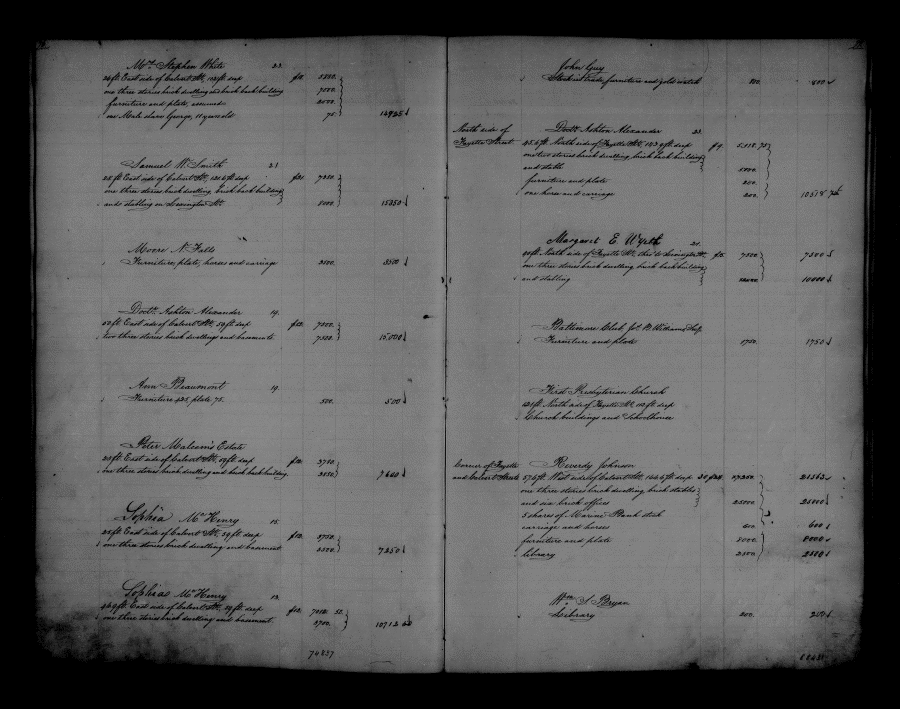 Mrs. Stephen White 23.
26 ft. East side of Calvert St., 142 ft. deep
one three stories brick dwelling and brick back building 7000.
furniture and plate, assumed 2000.
one Male slave George, 11 years old 75.
Samuel W. Smith 21
25 ft East side of Calvert St., deep 7350
one three stories brick dwelling, brick back building
and stabling on Lexington St. 8000 15350
Moore N. Falls
Furniture, plate, horses and carriage 3500. 3500
Doctr. Ashton Alexander 19.
50 ft. East side of Calvert St., 59 ft deep 7500.
two three stories brick dwellings and basements 7500. 15,000
Ann Beaumont 19
Furniture 425, plate 75. 500. 500
Peter Malcom's Estate
25 ft East side of Calvert St., 59 ft. deep 3750.
one three stories brick dwelling and brick back building
Sophia McHenry 15.
25 ft. East side of Calvert St., 59 ft. deep 3750.
one three stories brick dwelling and basement 3500. 7250
Sophia McHenry 13.
46.9 ft. East side of Calvert St., 59 ft. deep 7012. 50.
one three stories brick dwelling and basement 3700. 10712 50
74837
John Guy
Stock in trade, furniture and gold watch 800. 800
North side of
Fayette Street
Doctr. Ashton Alexander 23.
45.6 ft. North side of Fayette St., 143.9 ft. deep
one two stories brick dwelling, brick back building
and stable
furniture and plate
one horse and carriage 200.
Margaret E. Wyeth
North side of Fayette St., thro' to Lexington St. 7500 7500
one three stories brick dwelling brick back building
and stabling 10000. 10000
Baltimore Club
Furniture and plate 1750. 1750
First Presbyterian Church
North side of Fayette St., 112 ft. deep
Church buildings and Schoolhouse
Corner of Fayette
and Calvert Streets
Reverdy Johnson
57.6 ft. West side of Calvert St.
one three stories brick dwelling, brick stables
and six brick offices 25000. 25000
5 shares of Marine Bank stock
carriage and horses 600. 600
furniture and plate 8000. 8000
library 2500. 2500
Wm. S. Bryan
Library 200. 200